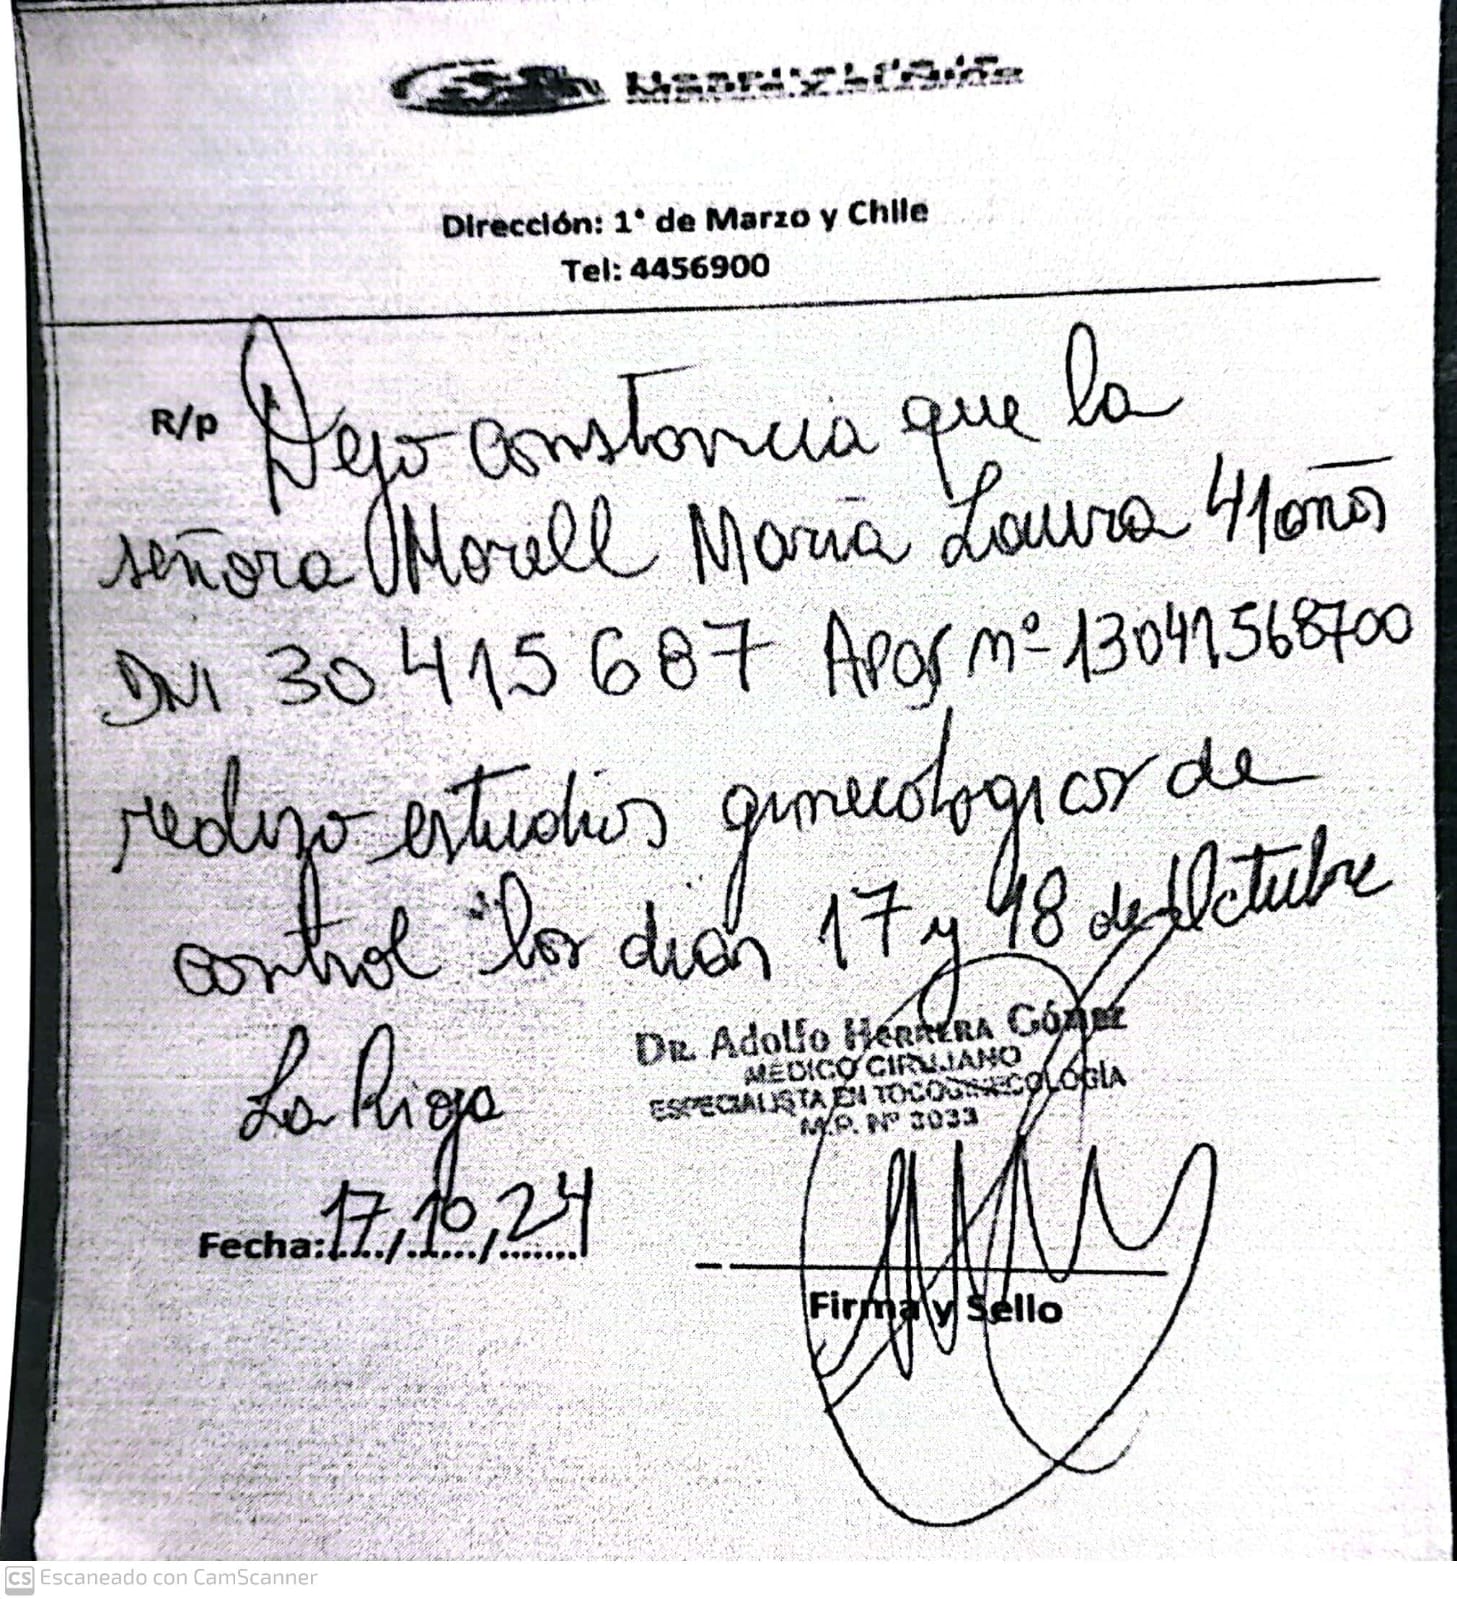 Dirección: 1° de Marzo y Chile
Tel: 4456900
R/p Dejo constancia que la
señora Morell María Laura 41 años
DNI 30 415 687 Apos nº 13041568700
realizo estudios ginecologicos de
control los dias 17 y 18 de Octubre
Dr. Adolfo Herrera Gómez
MÉDICO CIRUJANO
ESPECIALISTA EN TOCOGINECOLOGÍA
M.P. Nº 3033
La Rioja
Fecha: 17/10/24
Firma y Sello
CS Escaneado con CamScanner